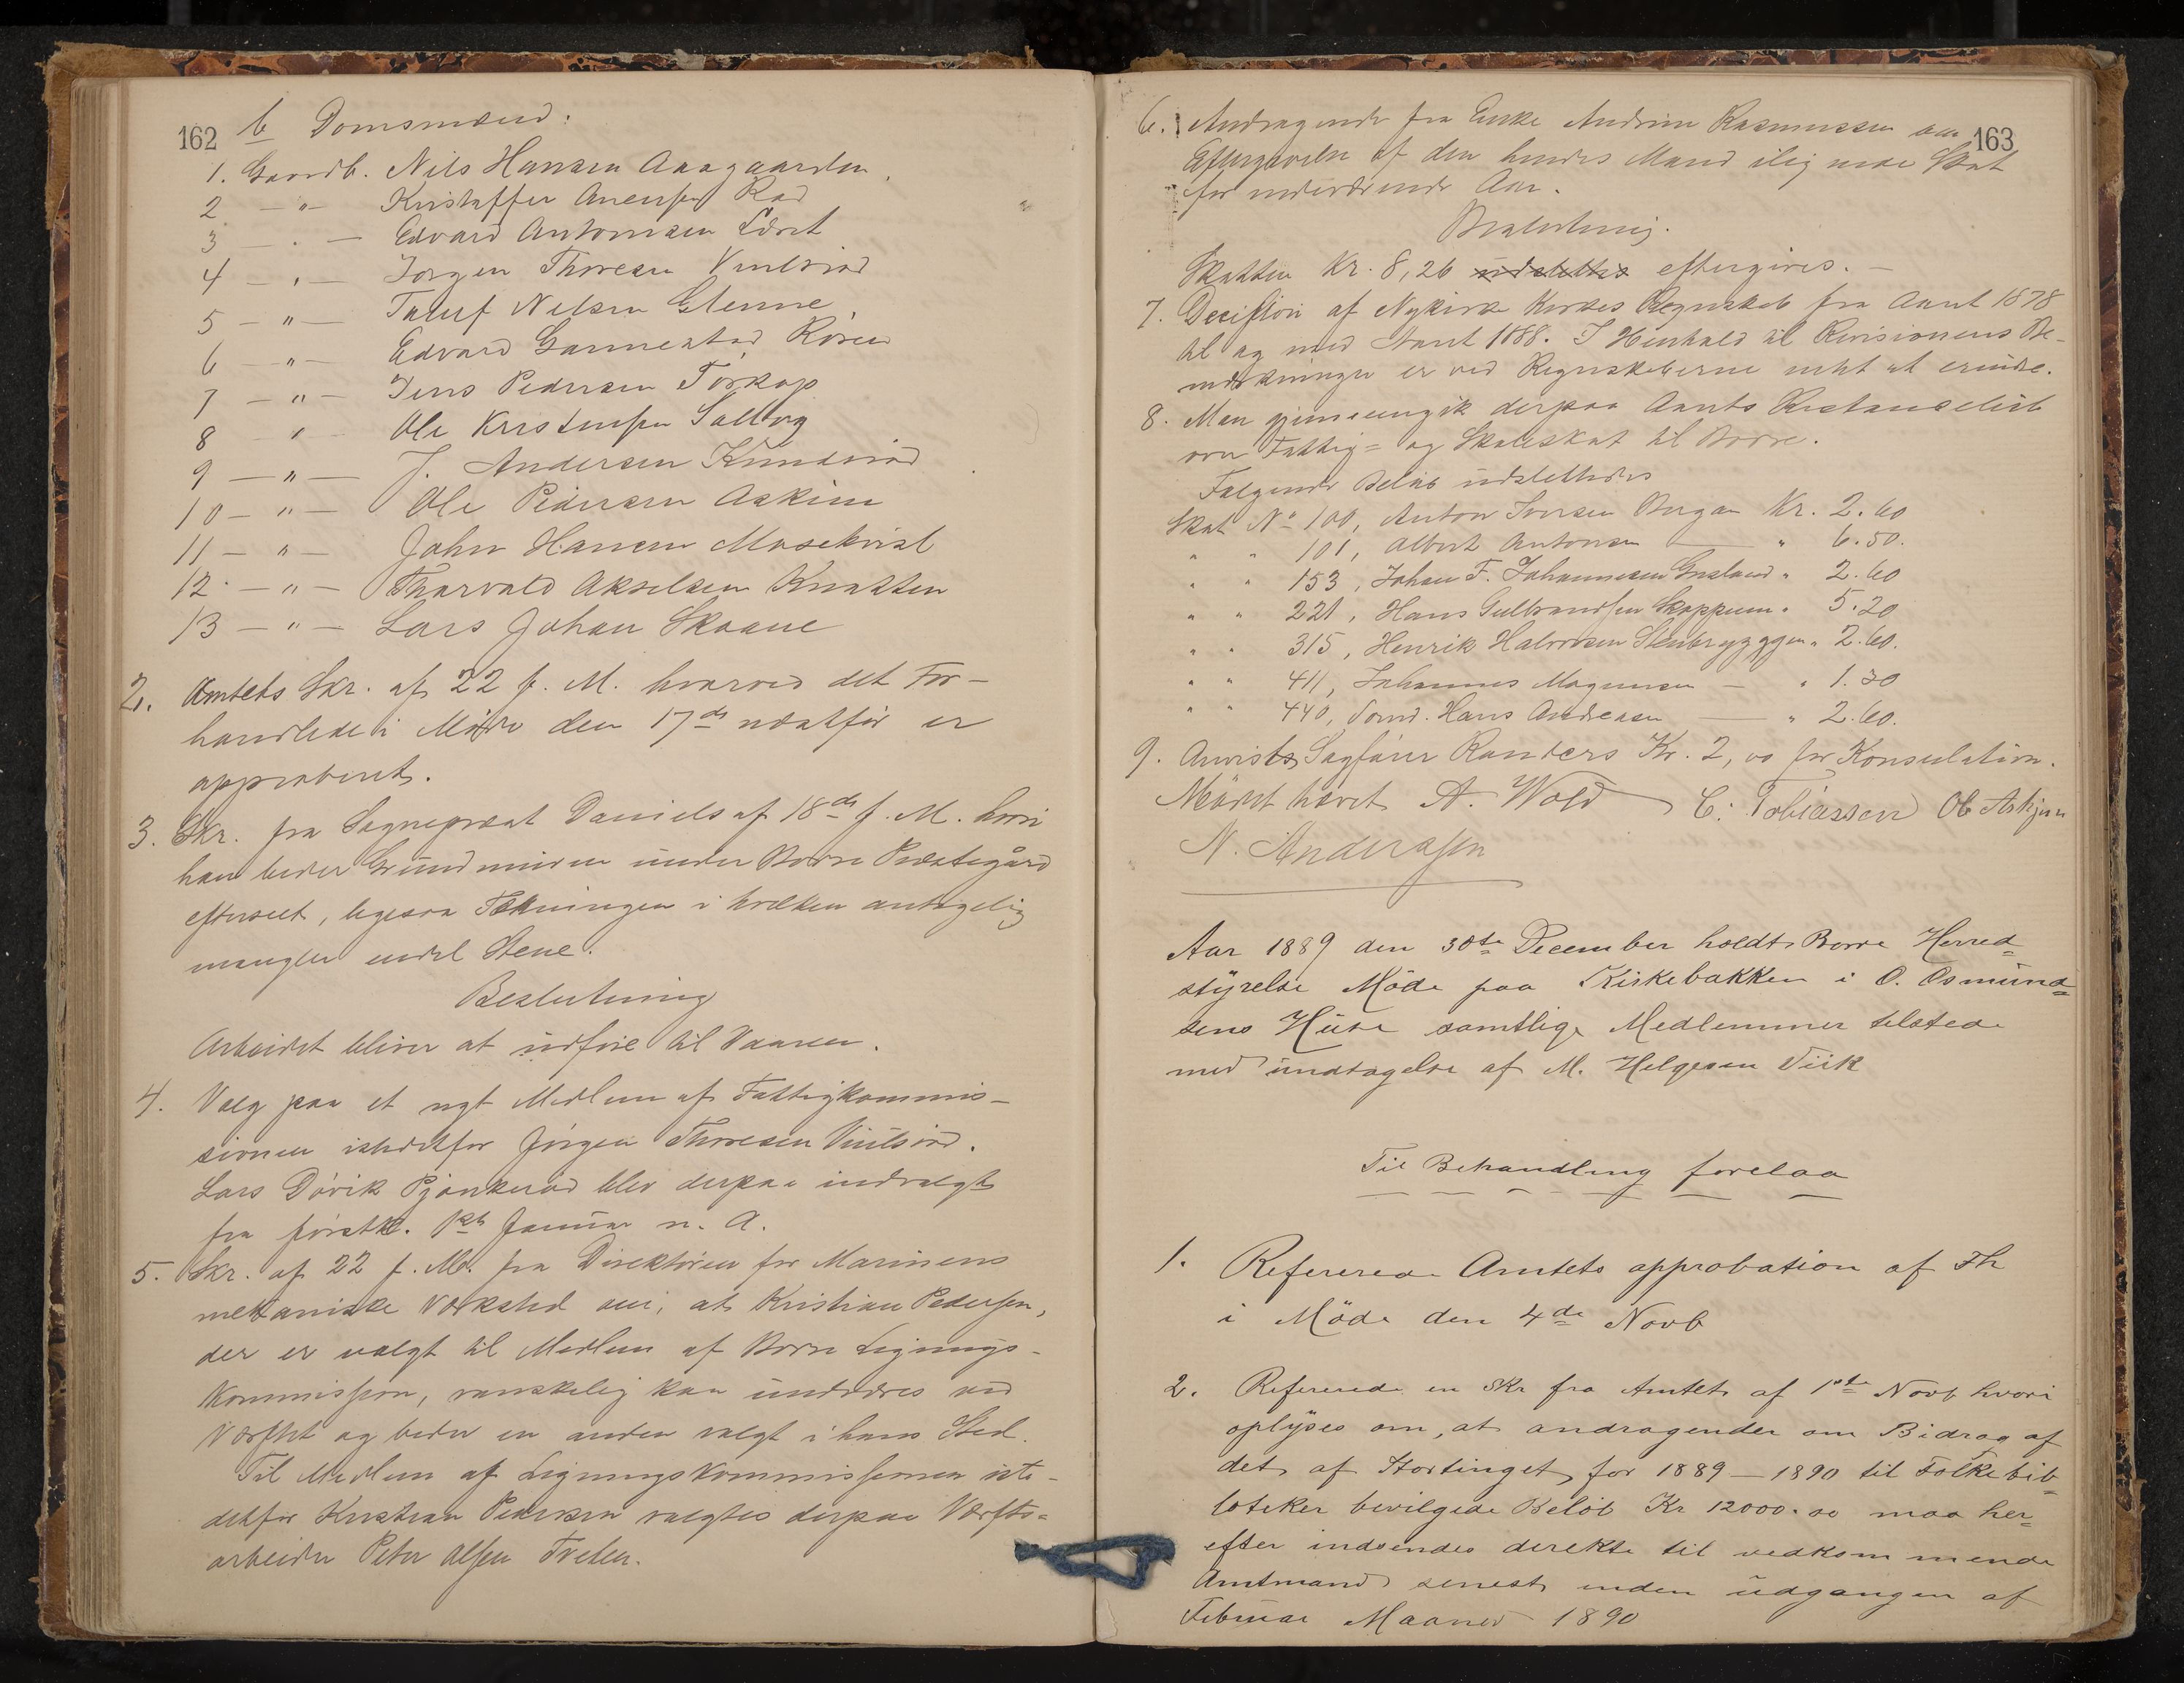 162
b Domsmænd:
1. Gaardb. Nils Hansen Aasgaarden.
2 — " — Kristoffer Anensen Rød
3 — " — Edvard Antonisen
4 — " — Jørgen Thoresen Vintsrød
5 — " — Nilsen Glenne
6 — " — Edvard Garmestad Røren
7 — " — Jens Pedersen Torkop
8 — " — Ole Kristensen Solberg
9 — " — J. Andersen Knudsrød
10 — " — Ole Pedersen Askim
11 — " — John Hansen Mosekvist
12 — " — Tharvald Akselsen Knatten
13 — " — Lars Johan Skaane
2. Amtets Skr. af 22 f. M. hvorved det For-
handlede i Möde den 17de næstfør er
approberet.
3. Skr. fra Sogneprest Daniels af 18de f. M. hvori
han beder Grundmuren under Borre Prestegård
efterseet, ligesaa Tækningen i hvilken antagelig
mangler endel Stene.
Beslutning
Arbeidet bliver at udføre til Vaaren.
4. Valg paa et nyt Medlem af Fattigkommis-
sionen istedetfor Jørgen Thoresen Vintsrød.
Lars Døvik Pjonkerød blev derpaa indvalgt
fra førstk. 1ste Januar n. A.
5. Skr. af 22 f. M. fra Direktören for Marinens
mekaniske Værksted om, at Kristian Pedersen,
der er valgt til Medlem af Borre Lignings-
kommission, vanskelig kan undværes ved
Værftet og beder en anden valgt i hans Sted.
Til Medlem af Ligningskommissionen iste-
detfor Kristian Pedersen valgtes derpaa Værfts=
arbeider Peter Olsen Tveten.
163
6. Andragende fra Enke Andrine Rasmussen om
Eftergivelse af den hendes Mand ilignede Skat
for indeværende Aar.
Beslutning.
Skatten Kr. 8,26 udslettes eftergives. —
7. Decision af Nykirke Kirkes Regnskab fra Aaret 1878
til og med Aaret 1888. I Henhold til Revisionens Be-
mærkninger er ved Regnskaberne intet at erindre.
8. Man gjennemgik derpaa Aarets Restanceliste
over Fattig= og Skoleskat til Borre.
Følgende Beløb udslettedes
Skat No 100, Anton Iversen Bergan Kr. 2.60
" " 101, Albert Antonsen — " 6.50.
" " 153, Johan F. Johannesen " 2.60
" " 221, Hans Gulbrandsen Skoppum " 5.20
" " 315, Henrik Halvorsen Stenbryggen " 2.60.
" " 411, Johannes Magnusen — " 1.30
" " 440, Hans Andreasen — " 2.60.
9. Anvistes Sagfører Randers Kr. 2,00 for Konsulation.
Mödet hævet A. Wold C. Tobiassen Ob Askjem
N. Anderssen
Aar 1889 den 30te December holdt Borre Herred=
styrelse Möde paa Kirkebakken i O. Osmund=
sens Huse samtlige Medlemmer tilstede
med undtagelse af M. Helgesen Viik
Til Behandling forelaa
1. Refererede Amtets approbation af Fh
i Möde den 4de Novb
2. Refererede en Skr fra Amtet af 1ste Novb hvori
oplyses om, at andragender om Bidrag af
det af Stortinget for 1889 — 1890 til Folkebib=
loteker bevilgede Beløb Kr 12000.00 maa her=
efter indsendes direkte til vedkommende
Amtmand senest inden udgangen af
Februar Maaned 1890